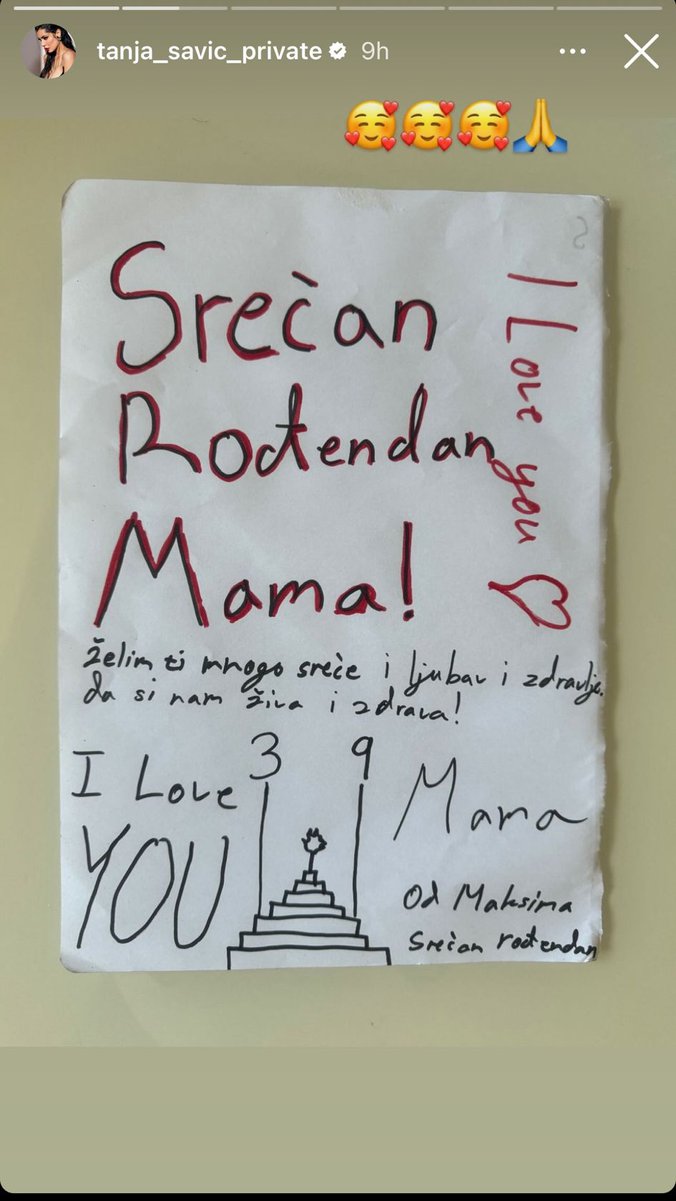 tanja_savic_private 9h
🥰🥰🥰🙏
Srećan
Rođendan
Mama!
I Love you ♡
želim ti mnogo sreće i ljubav i zdravlje.
da si nam živa i zdrava!
3 9
I Love
YOU
Mama
Od Maksima
Srećan rođendan